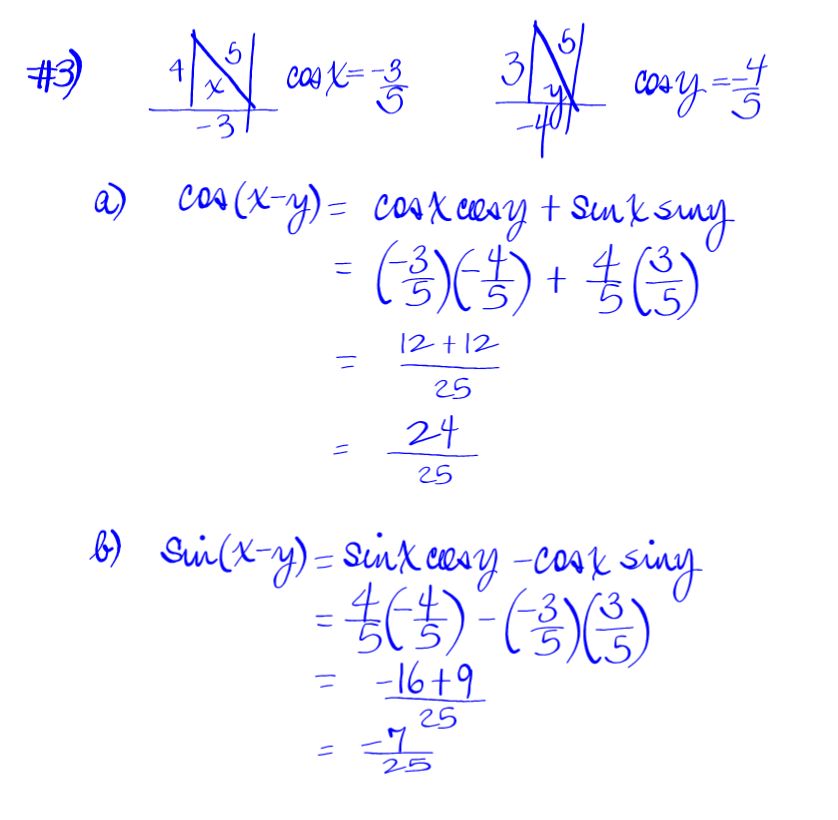 #3) 4 5 x -3 cos x = -3/5 3 5 y -4 cos y = -4/5
a) cos(x-y) = cos x cos y + sin x sin y
= (-3/5)(-4/5) + 4/5 (3/5)
= 12+12/25
= 24/25
b) sin(x-y) = sin x cos y - cos x sin y
= 4/5 (-4/5) - (-3/5)(3/5)
= -16+9/25
= -7/25